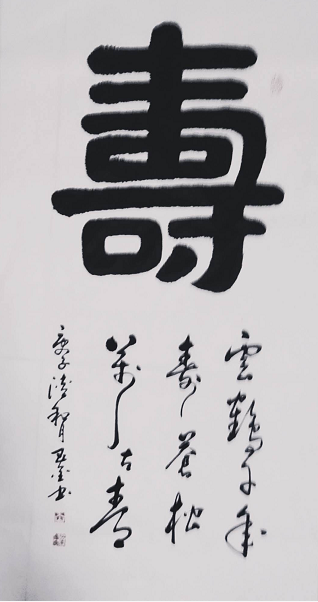 壽
雲鶴千年
壽蒼松
萬古青
庚子
書